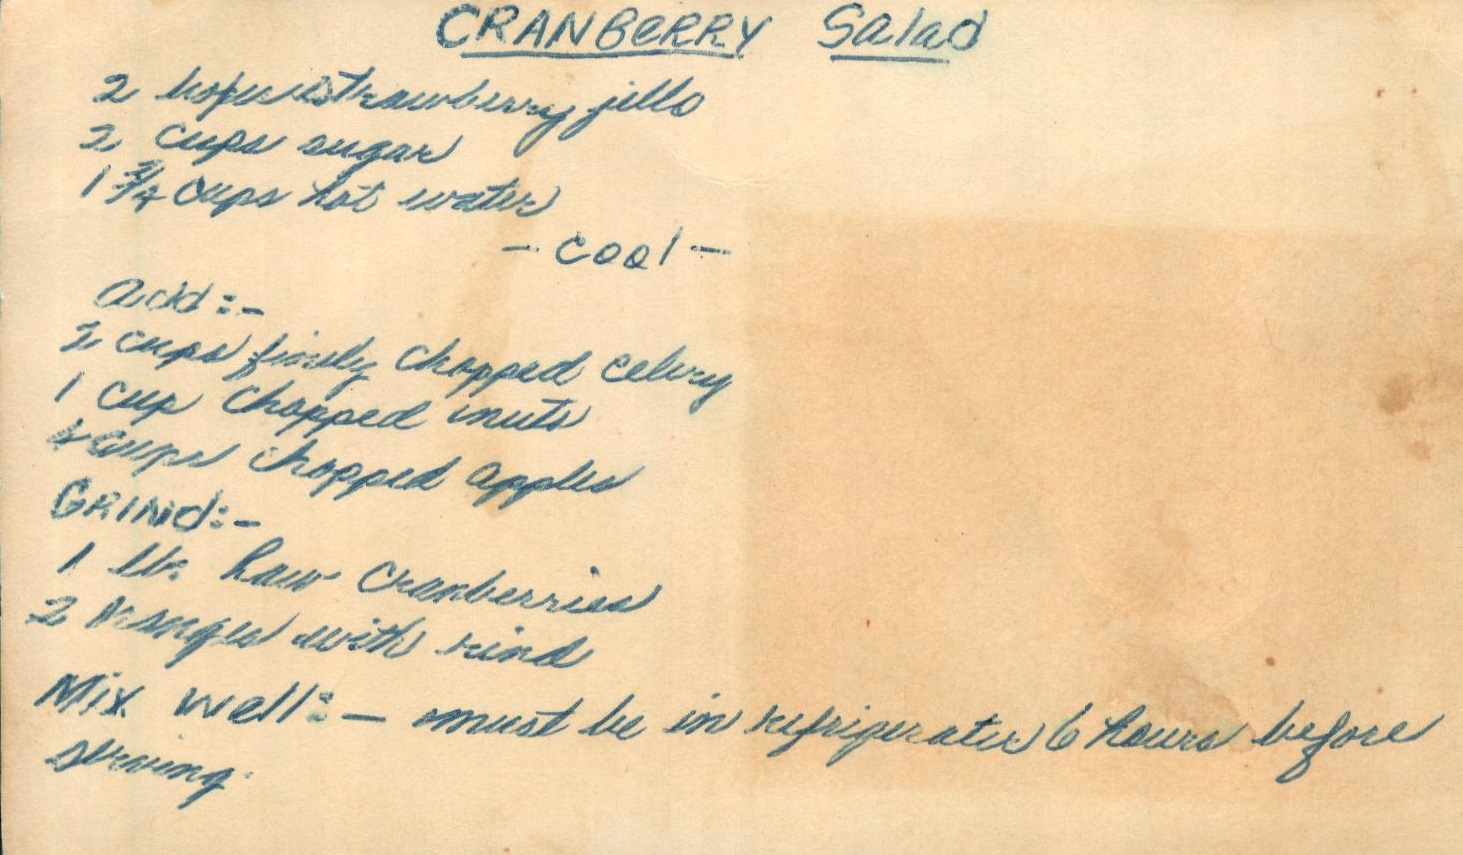 CRANBERRY Salad
2 strawberry jello
2 cups sugar
1 3/4 cups hot water
- cool -
Add:-
2 cups finely chopped celery
1 cup chopped nuts
cups chopped apples
GRINd:-
1 lb. Raw Cranberries
2 with rind
Mix well:- must be in refrigerater 6 hours before
serving.